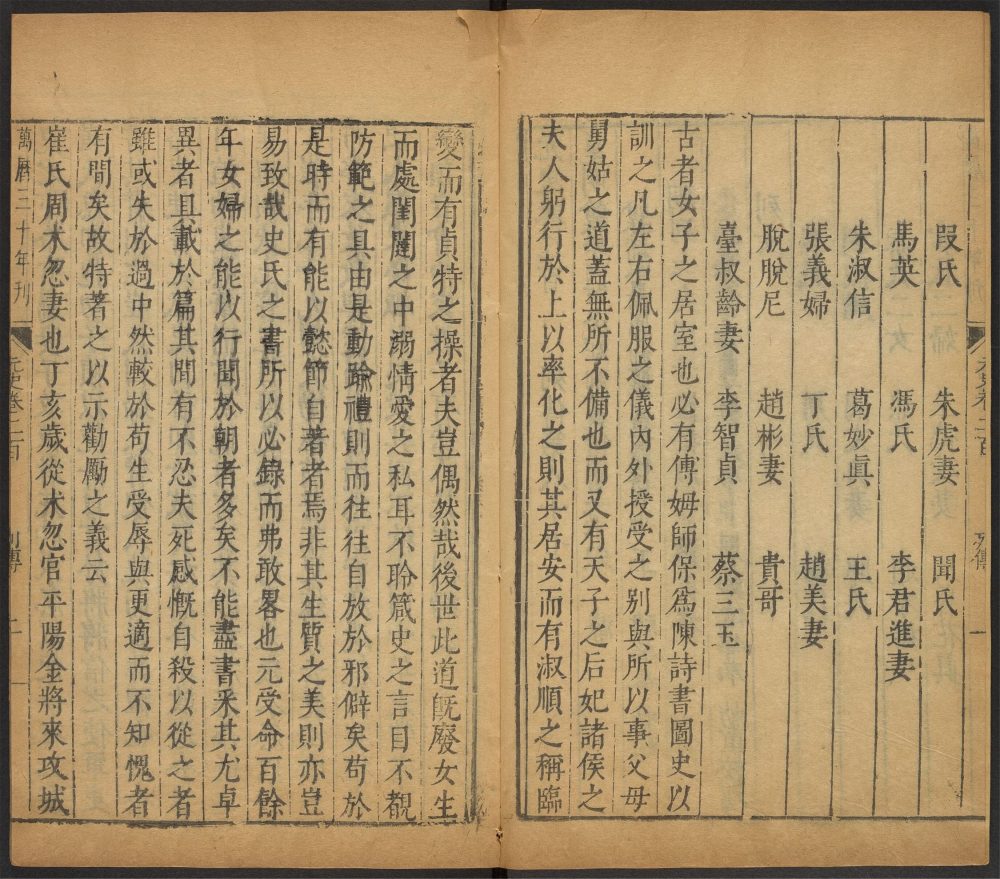 段氏 朱虎妻 聞氏
馬英 馮氏 李君進妻
朱淑信 葛妙眞 王氏
張義婦 丁氏 趙美妻
脫脫尼 趙彬妻 貴哥
臺叔齡妻 李智貞 蔡三玉
古者女子之居室也必有傅姆師保爲陳詩書圖史以
訓之凡左右佩服之儀內外授受之別與所以事父母
舅姑之道蓋無所不備也而又有天子之后妃諸侯之
夫人躬行於上以率化之則其居安而有淑順之稱臨
變而有貞特之操者夫豈偶然哉後世此道旣廢女生
而處閨闥之中溺情愛之私耳不聆箴史之言目不覩
防範之具由是動踰禮則而往往自放於邪僻矣苟於
是時而有能以懿節自著者焉非其生質之美則亦豈
易致哉史氏之書所以必錄而弗敢畧也元受命百餘
年女婦之能以行聞於朝者多矣不能盡書采其尤卓
異者具載於篇其間有不忍夫死感慨自殺以從之者
雖或失於過中然較於苟生受辱與更適而不知愧者
有間矣故特著之以示勸勵之義云
崔氏周术忽妻也丁亥歲從术忽官平陽金將來攻城
萬曆三十年刊
元史卷二百
列傳
二
元史卷二百
列傳
一